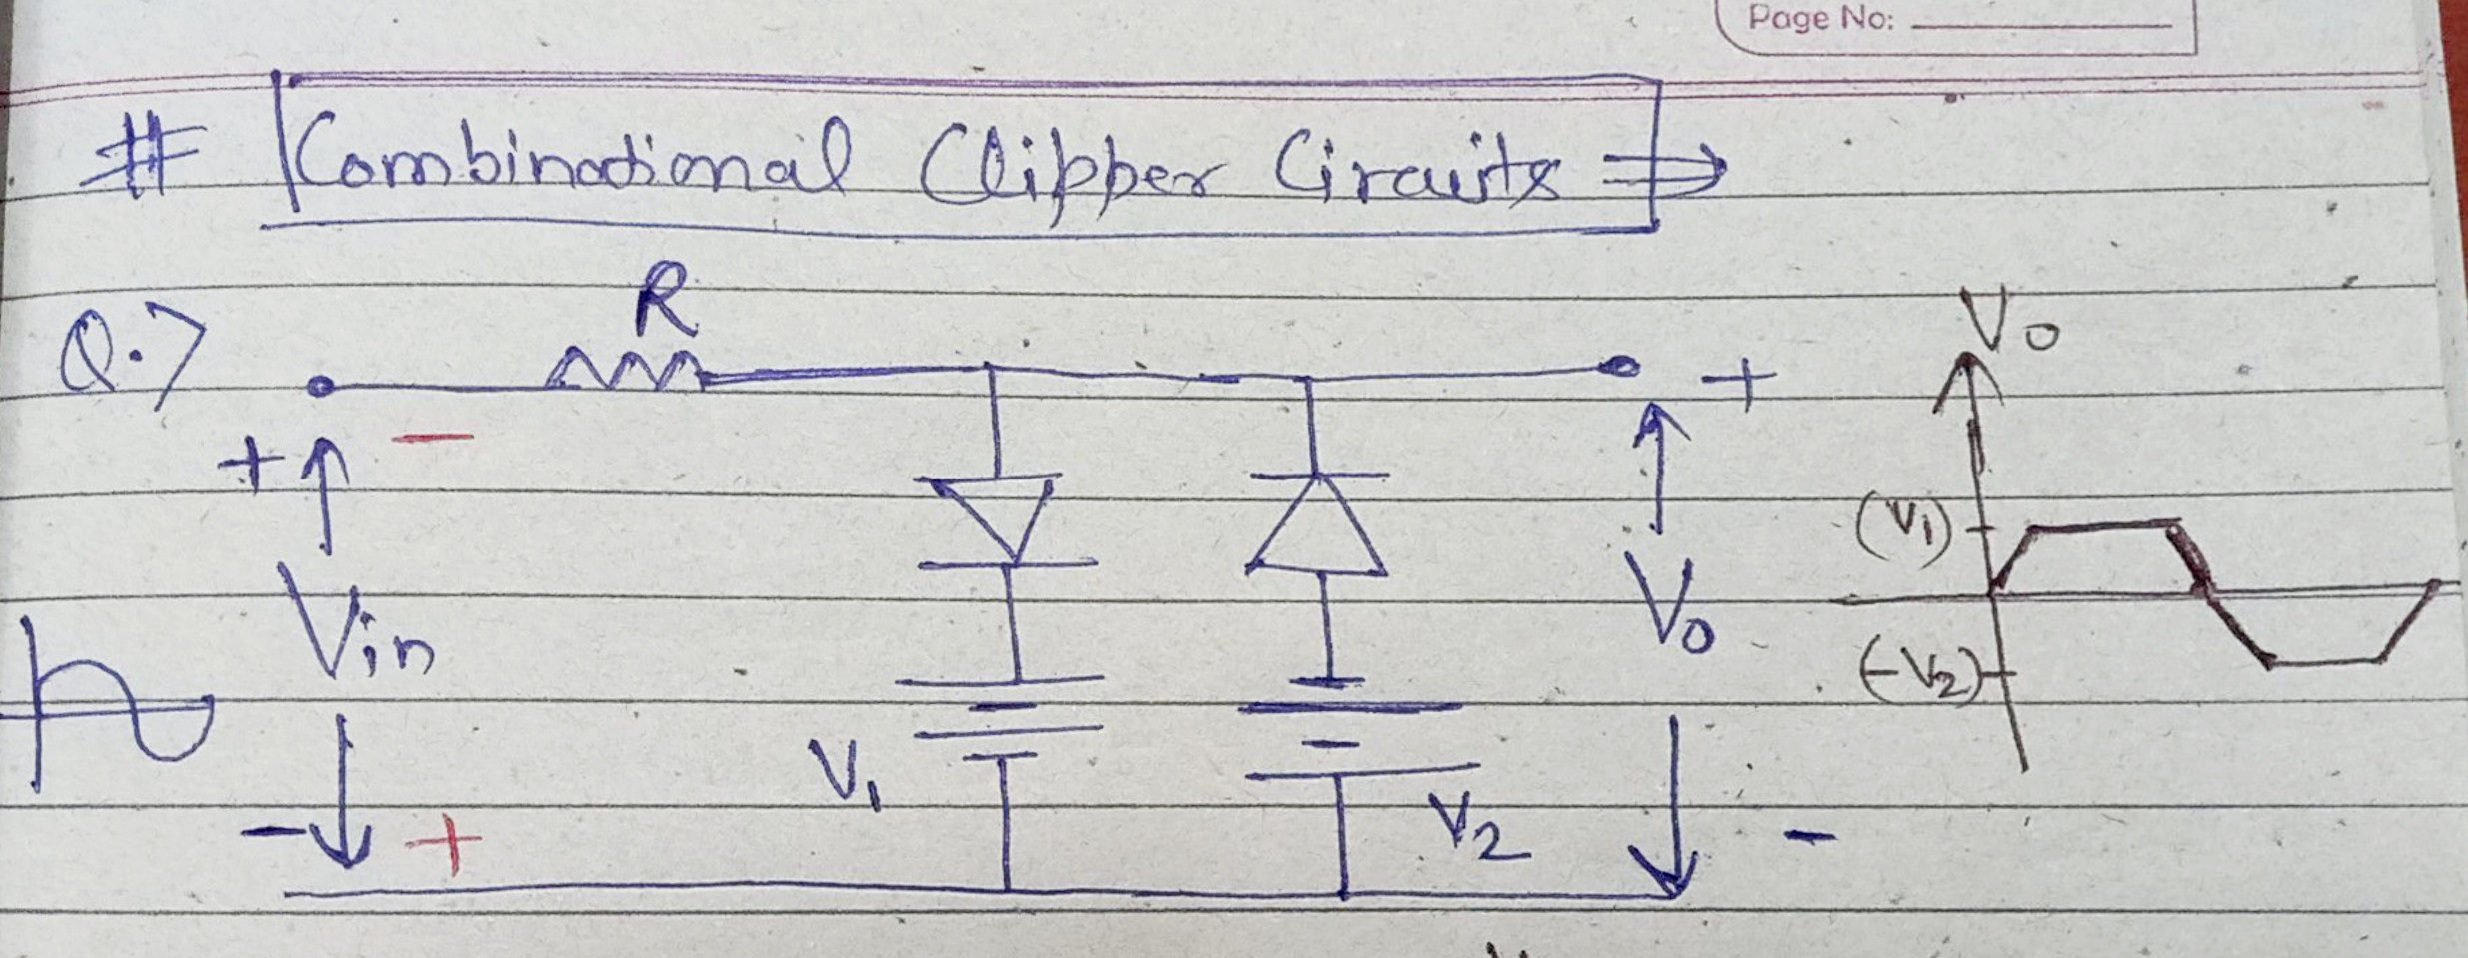 Page No:
# Combinational Clipper Circuits ⇒
Q.>
R
+ -
+
Vin
- +
V1
V2
Vo
-
Vo
(V1)
(-V2)